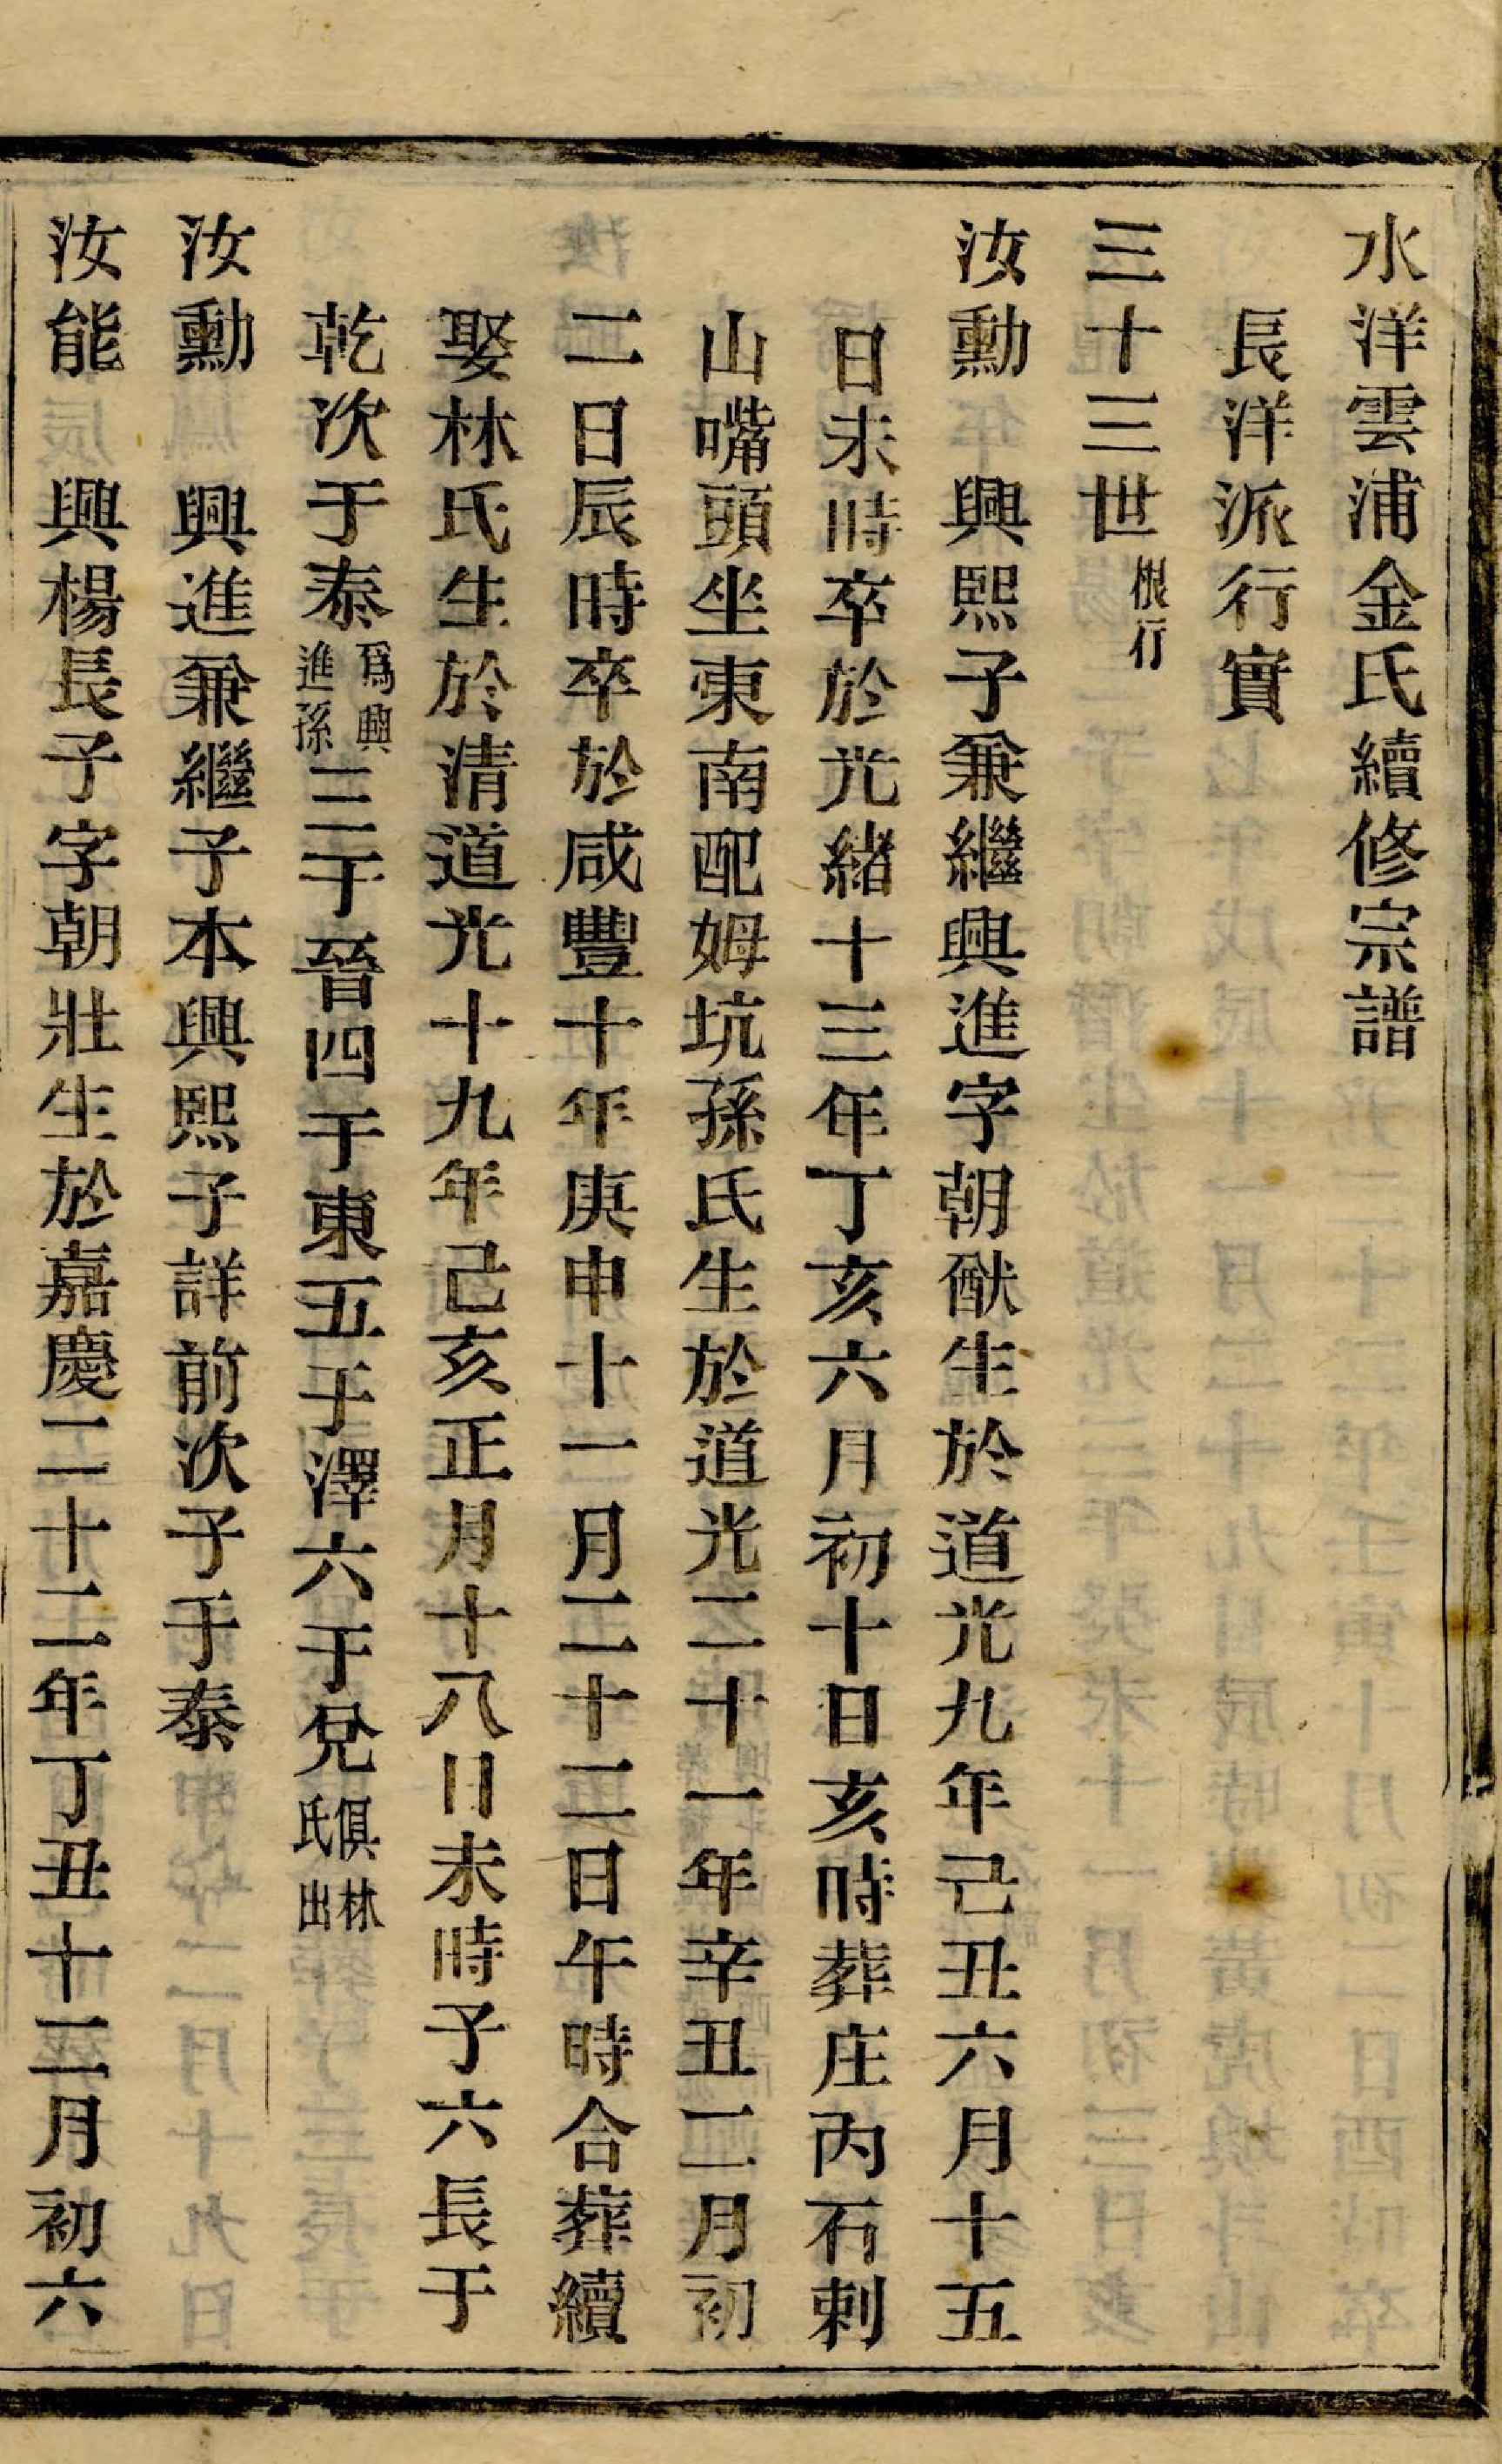 水洋雲浦金氏續修宗譜
長洋派行實
三十三世根行
汝勳 興熙子兼繼興進字朝猷生於道光九年己丑六月十五
日未時卒於光緒十三年丁亥六月初十日亥時葬庄丙石刺
山嘴頭坐東南配姆坑孫氏生於道光二十一年辛丑二月初
二日辰時卒於咸豐十年庚申十一月二十二日午時合葬續
娶林氏生於清道光十九年己亥正月十八日未時子六長于
乾次于泰爲興進孫三于晉四于東五于澤六于兌俱林氏出
汝勳 興進兼繼子本興熙子詳前次子于泰
汝能 興楊長子字朝壯生於嘉慶二十二年丁丑十二月初六